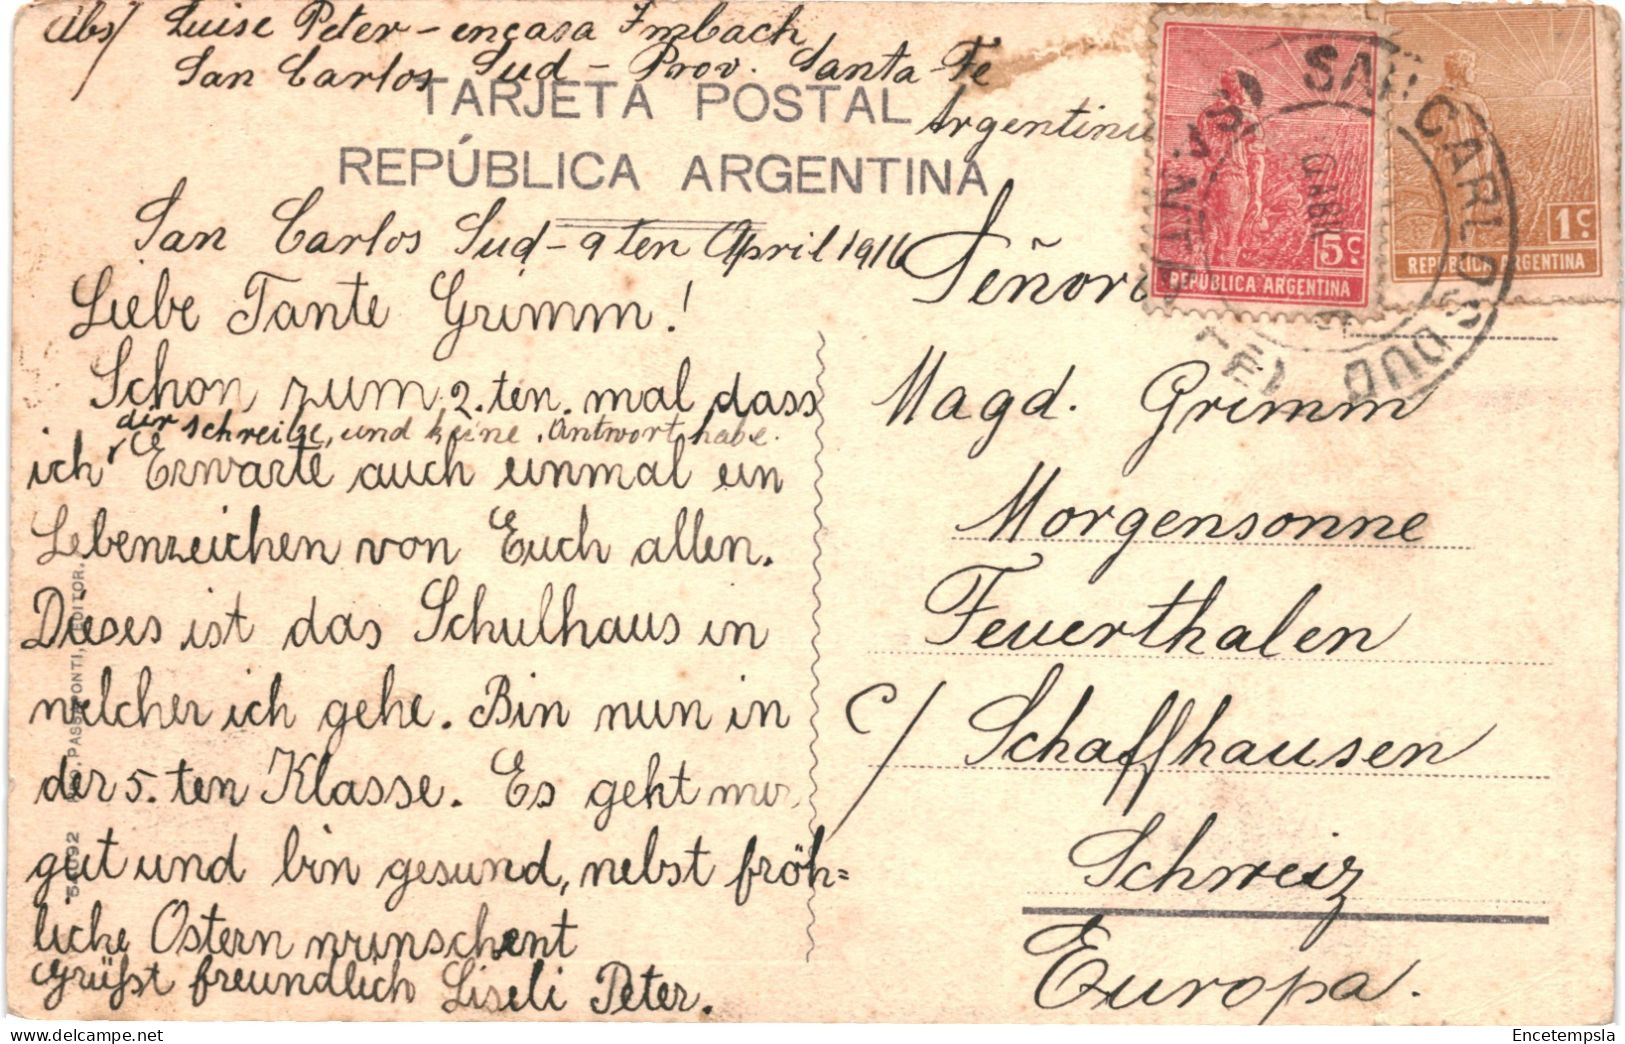 Abs/ Luise Peter - en casa Imbach
San Carlos Sud - Prov. Santa-Fe
Argentinien
TARJETA POSTAL
REPÚBLICA ARGENTINA
San Carlos Sud - 9ten April 1916
Liebe Tante Grimm!
Schon zum 2.ten. mal dass
dir schreibe, und keine Antwort habe.
ich Erwarte auch einmal ein
Lebenzeichen von Euch allen.
Dieses ist das Schulhaus in
welcher ich gehe. Bin nun in
der 5.ten Klasse. Es geht mir
gut und bin gesund, nebst fröh=
liche Ostern wünschent
Grüßt freundlich Liseli Peter.
Señora
Magd. Grimm
Morgensonne
Feuerthalen
c/ Schaffhausen
Schweiz
Europa.
5c
REPÚBLICA ARGENTINA
1c
REPÚBLICA ARGENTINA
SAN CARLOS SUD
EDITOR.
Encetempsla